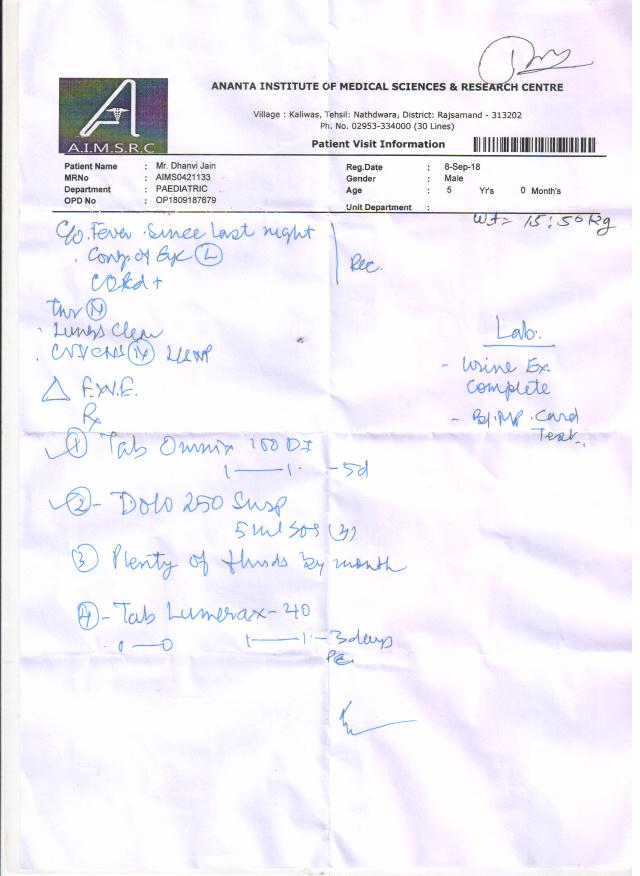 ANANTA INSTITUTE OF MEDICAL SCIENCES & RESEARCH CENTRE
A.I.M.S.R.C
Village : Kaliwas, Tehsil: Nathdwara, District: Rajsamand - 313202
Ph. No. 02953-334000 (30 Lines)
Patient Visit Information
Patient Name : Mr. Dhanvi Jain
MRNo : AIMS0421133
Department : PAEDIATRIC
OPD No : OP1809187679
Reg.Date : 8-Sep-18
Gender : Male
Age : 5 Yr's 0 Month's
Unit Department :
Wt = 15.50 kg
C/o Fever Since Last night
Cong. of Eye (L)
Rec.
(N)
Lungs Clear
CVS/CNS (N)
△ F.V.E.
Rx
Lab.
- Urine Ex
Complete
- Card
Test
① Tab Omnix 100 DT
1 — 1 - 5d
② - Dolo 250 Susp
5ml SOS
③ Plenty of fluids by month
④ - Tab Lumerax - 40
1 — 1 - 3days